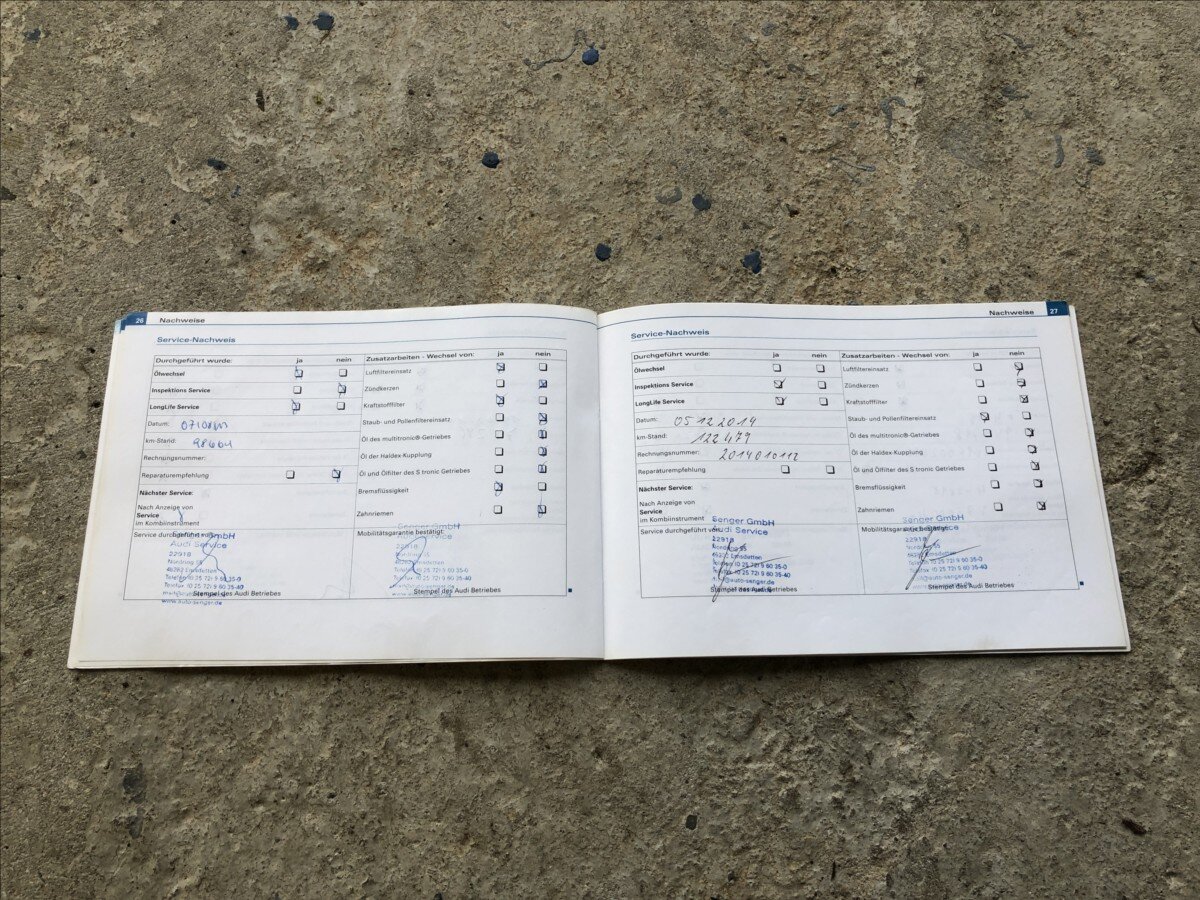 26 Nachweise
Service-Nachweis
Durchgeführt wurde: ja nein
Ölwechsel
Inspektions Service
LongLife Service
Datum:
km-Stand: 98664
Rechnungsnummer:
Reparaturempfehlung
Nächster Service:
Nach Anzeige von
Service
im Kombiinstrument
Zusatzarbeiten - Wechsel von: ja nein
Luftfiltereinsatz
Zündkerzen
Kraftstofffilter
Staub- und Pollenfiltereinsatz
Öl des multitronic®-Getriebes
Öl der Haldex-Kupplung
Öl und Ölfilter des S tronic Getriebes
Bremsflüssigkeit
Zahnriemen
Service durchgeführt von:
Audi Service
22918
Nordring 35
48282 Emsdetten
Telefon (0 25 72) 9 60 35-0
Telefax (0 25 72) 9 60 35-40
www.auto-senger.de
Stempel des Audi Betriebes
Mobilitätsgarantie bestätigt:
Senger GmbH
Audi Service
Stempel des Audi Betriebes
Nachweise 27
Service-Nachweis
Durchgeführt wurde: ja nein
Ölwechsel
Inspektions Service
LongLife Service
Datum: 05 12 2014
km-Stand: 122 479
Rechnungsnummer: 2014010112
Reparaturempfehlung
Nächster Service:
Nach Anzeige von
Service
im Kombiinstrument
Zusatzarbeiten - Wechsel von: ja nein
Luftfiltereinsatz
Zündkerzen
Kraftstofffilter
Staub- und Pollenfiltereinsatz
Öl des multitronic®-Getriebes
Öl der Haldex-Kupplung
Öl und Ölfilter des S tronic Getriebes
Bremsflüssigkeit
Zahnriemen
Service durchgeführt von:
Senger GmbH
Audi Service
22918
Nordring 35
48282 Emsdetten
Telefon (0 25 72) 9 60 35-0
Telefax (0 25 72) 9 60 35-40
mail@auto-senger.de
Stempel des Audi Betriebes
Mobilitätsgarantie bestätigt:
Senger GmbH
Audi Service
22918
Nordring 35
48282 Emsdetten
Stempel des Audi Betriebes